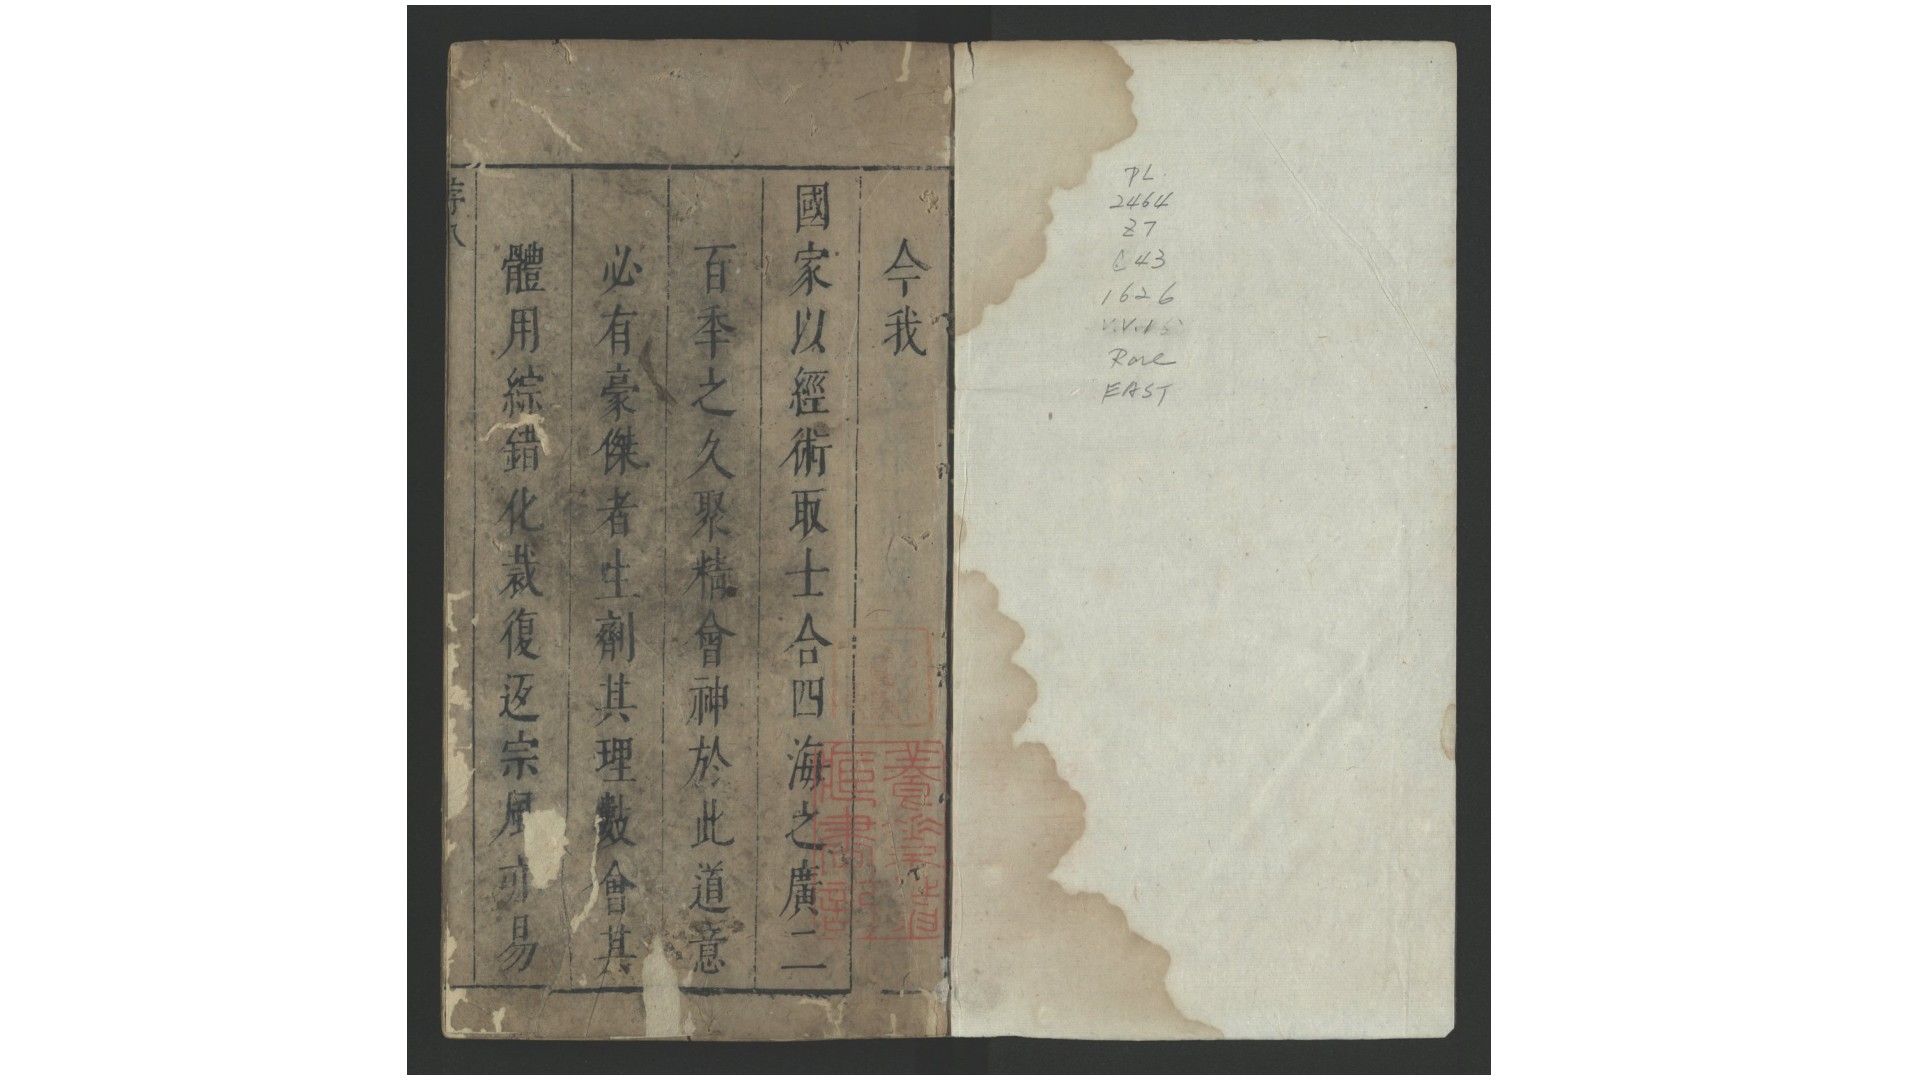 PL
2464
Z7
C43
1626
Rare
EAST
今我
國家以經術取士合四海之廣二
百秊之久聚精會神於此道意
必有豪傑者生劑其理數會其
體用綜錯化裁復返宗風亦易
序